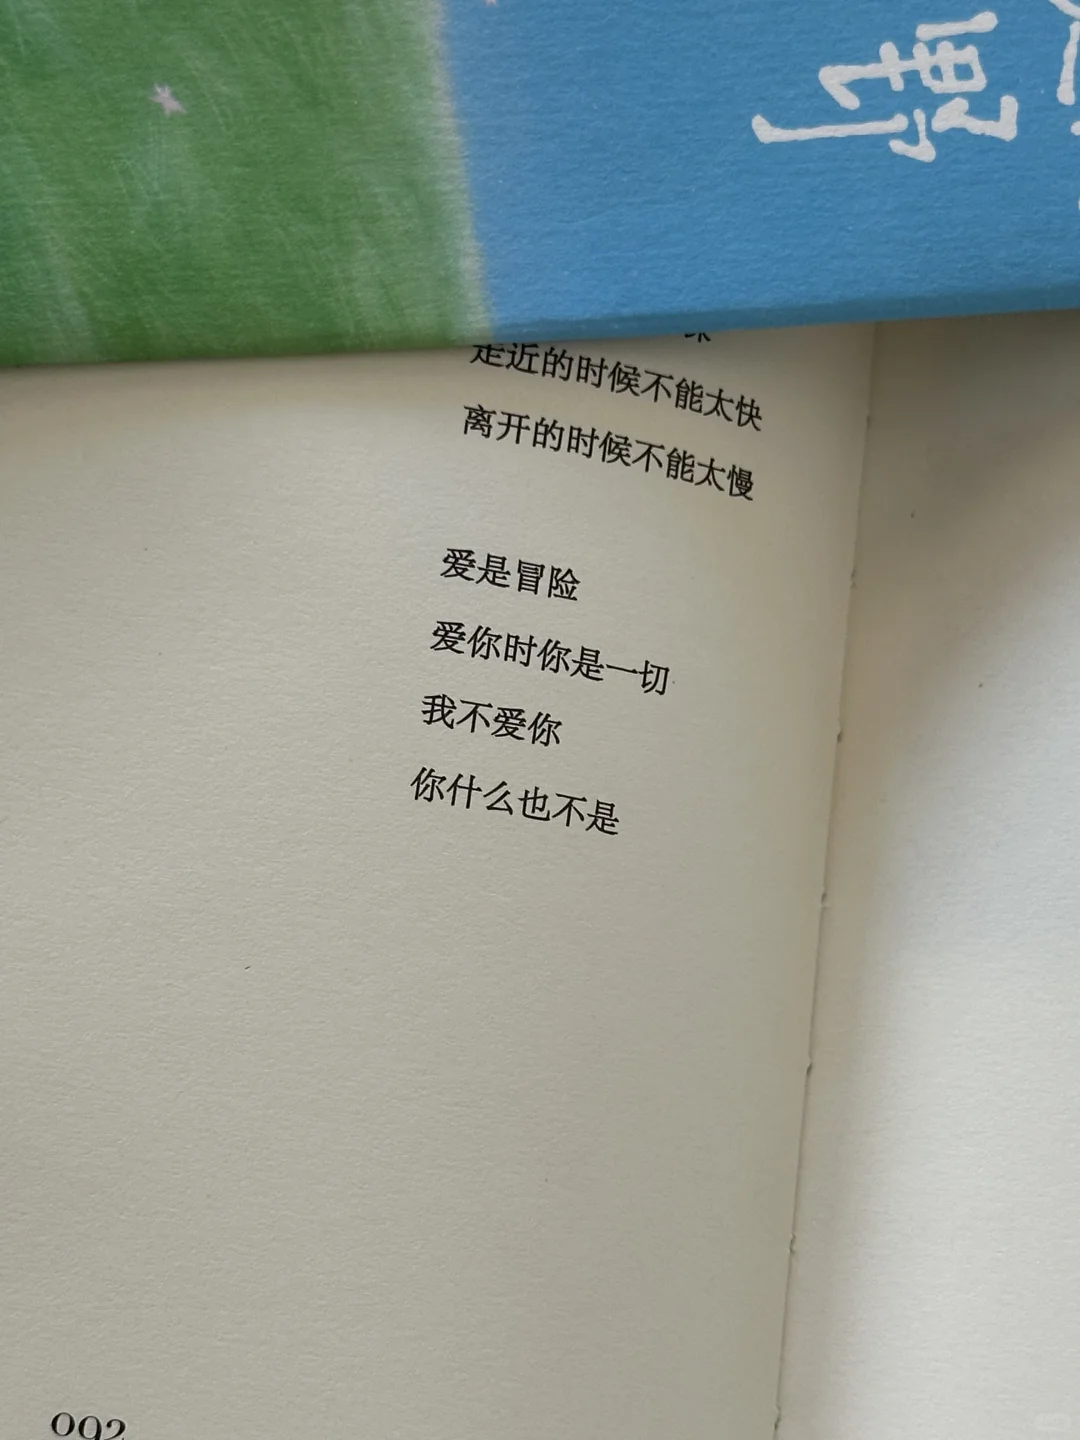 走近的时候不能太快
离开的时候不能太慢
爱是冒险
爱你时你是一切
我不爱你
你什么也不是
092